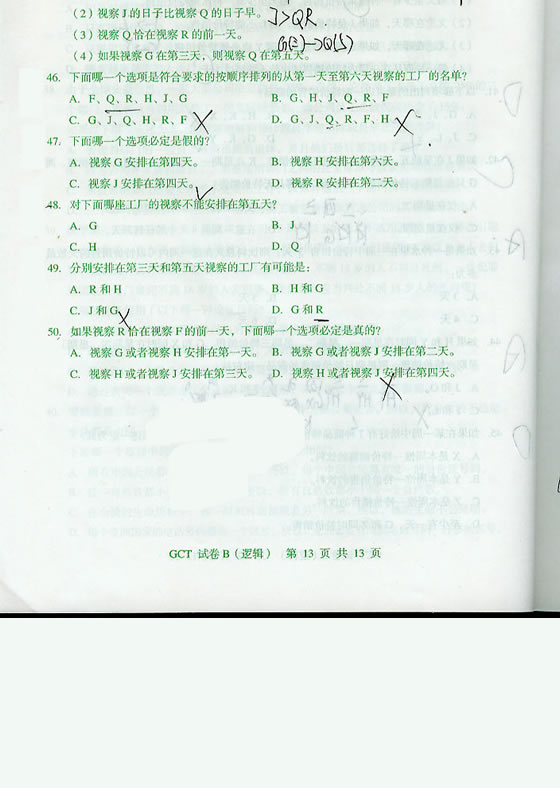 （2）视察 J 的日子比视察 Q 的日子早。 J>QR
（3）视察 Q 恰在视察 R 的前一天。
（4）如果视察 G 在第三天，则视察 Q 在第五天。 G(三)→Q(5)
46. 下面哪一个选项是符合要求的按顺序排列的从第一天至第六天视察的工厂的名单？
A. F、Q、R、H、J、G B. G、H、J、Q、R、F
C. G、J、Q、H、R、F D. G、J、Q、R、F、H
47. 下面哪一个选项必定是假的？
A. 视察 G 安排在第四天。 B. 视察 H 安排在第六天。
C. 视察 J 安排在第四天。 D. 视察 R 安排在第二天。
48. 对下面哪座工厂的视察不能安排在第五天？
A. G B. J
C. H D. Q
49. 分别安排在第三天和第五天视察的工厂有可能是：
A. R 和 H B. H 和 G
C. J 和 G D. G 和 R
50. 如果视察 R 恰在视察 F 的前一天，下面哪一个选项必定是真的？
A. 视察 G 或者视察 H 安排在第一天。 B. 视察 G 或者视察 J 安排在第二天。
C. 视察 H 或者视察 J 安排在第三天。 D. 视察 H 或者视察 J 安排在第四天。
GCT 试卷 B（逻辑） 第 13 页 共 13 页